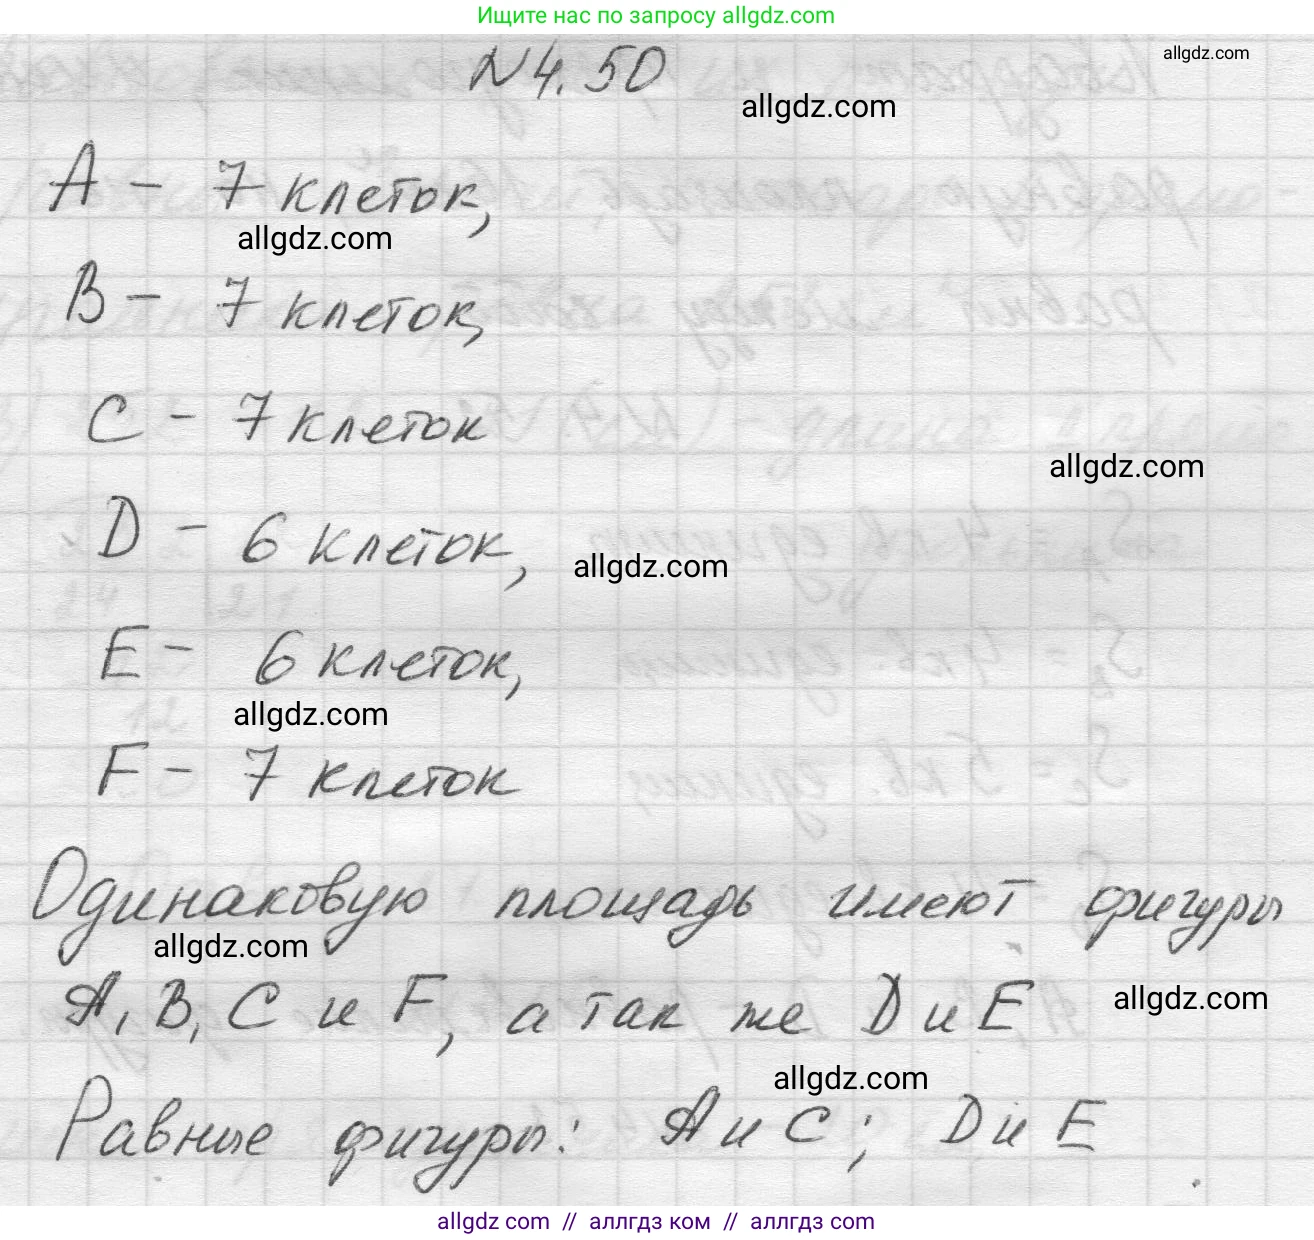 Ищите нас по запросу allgdz.com
allgdz.com
№ 4.50
allgdz.com
A - 7 клеток,
allgdz.com
B - 7 клеток,
C - 7 клеток
allgdz.com
D - 6 клеток,
allgdz.com
E - 6 клеток,
allgdz.com
F - 7 клеток
Одинаковую площадь имеют фигуры
allgdz.com
A, B, C и F, а так же D и E
allgdz.com
allgdz.com
Равные фигуры: A и C; D и E
allgdz.com // аллгдз ком // аллгдз com